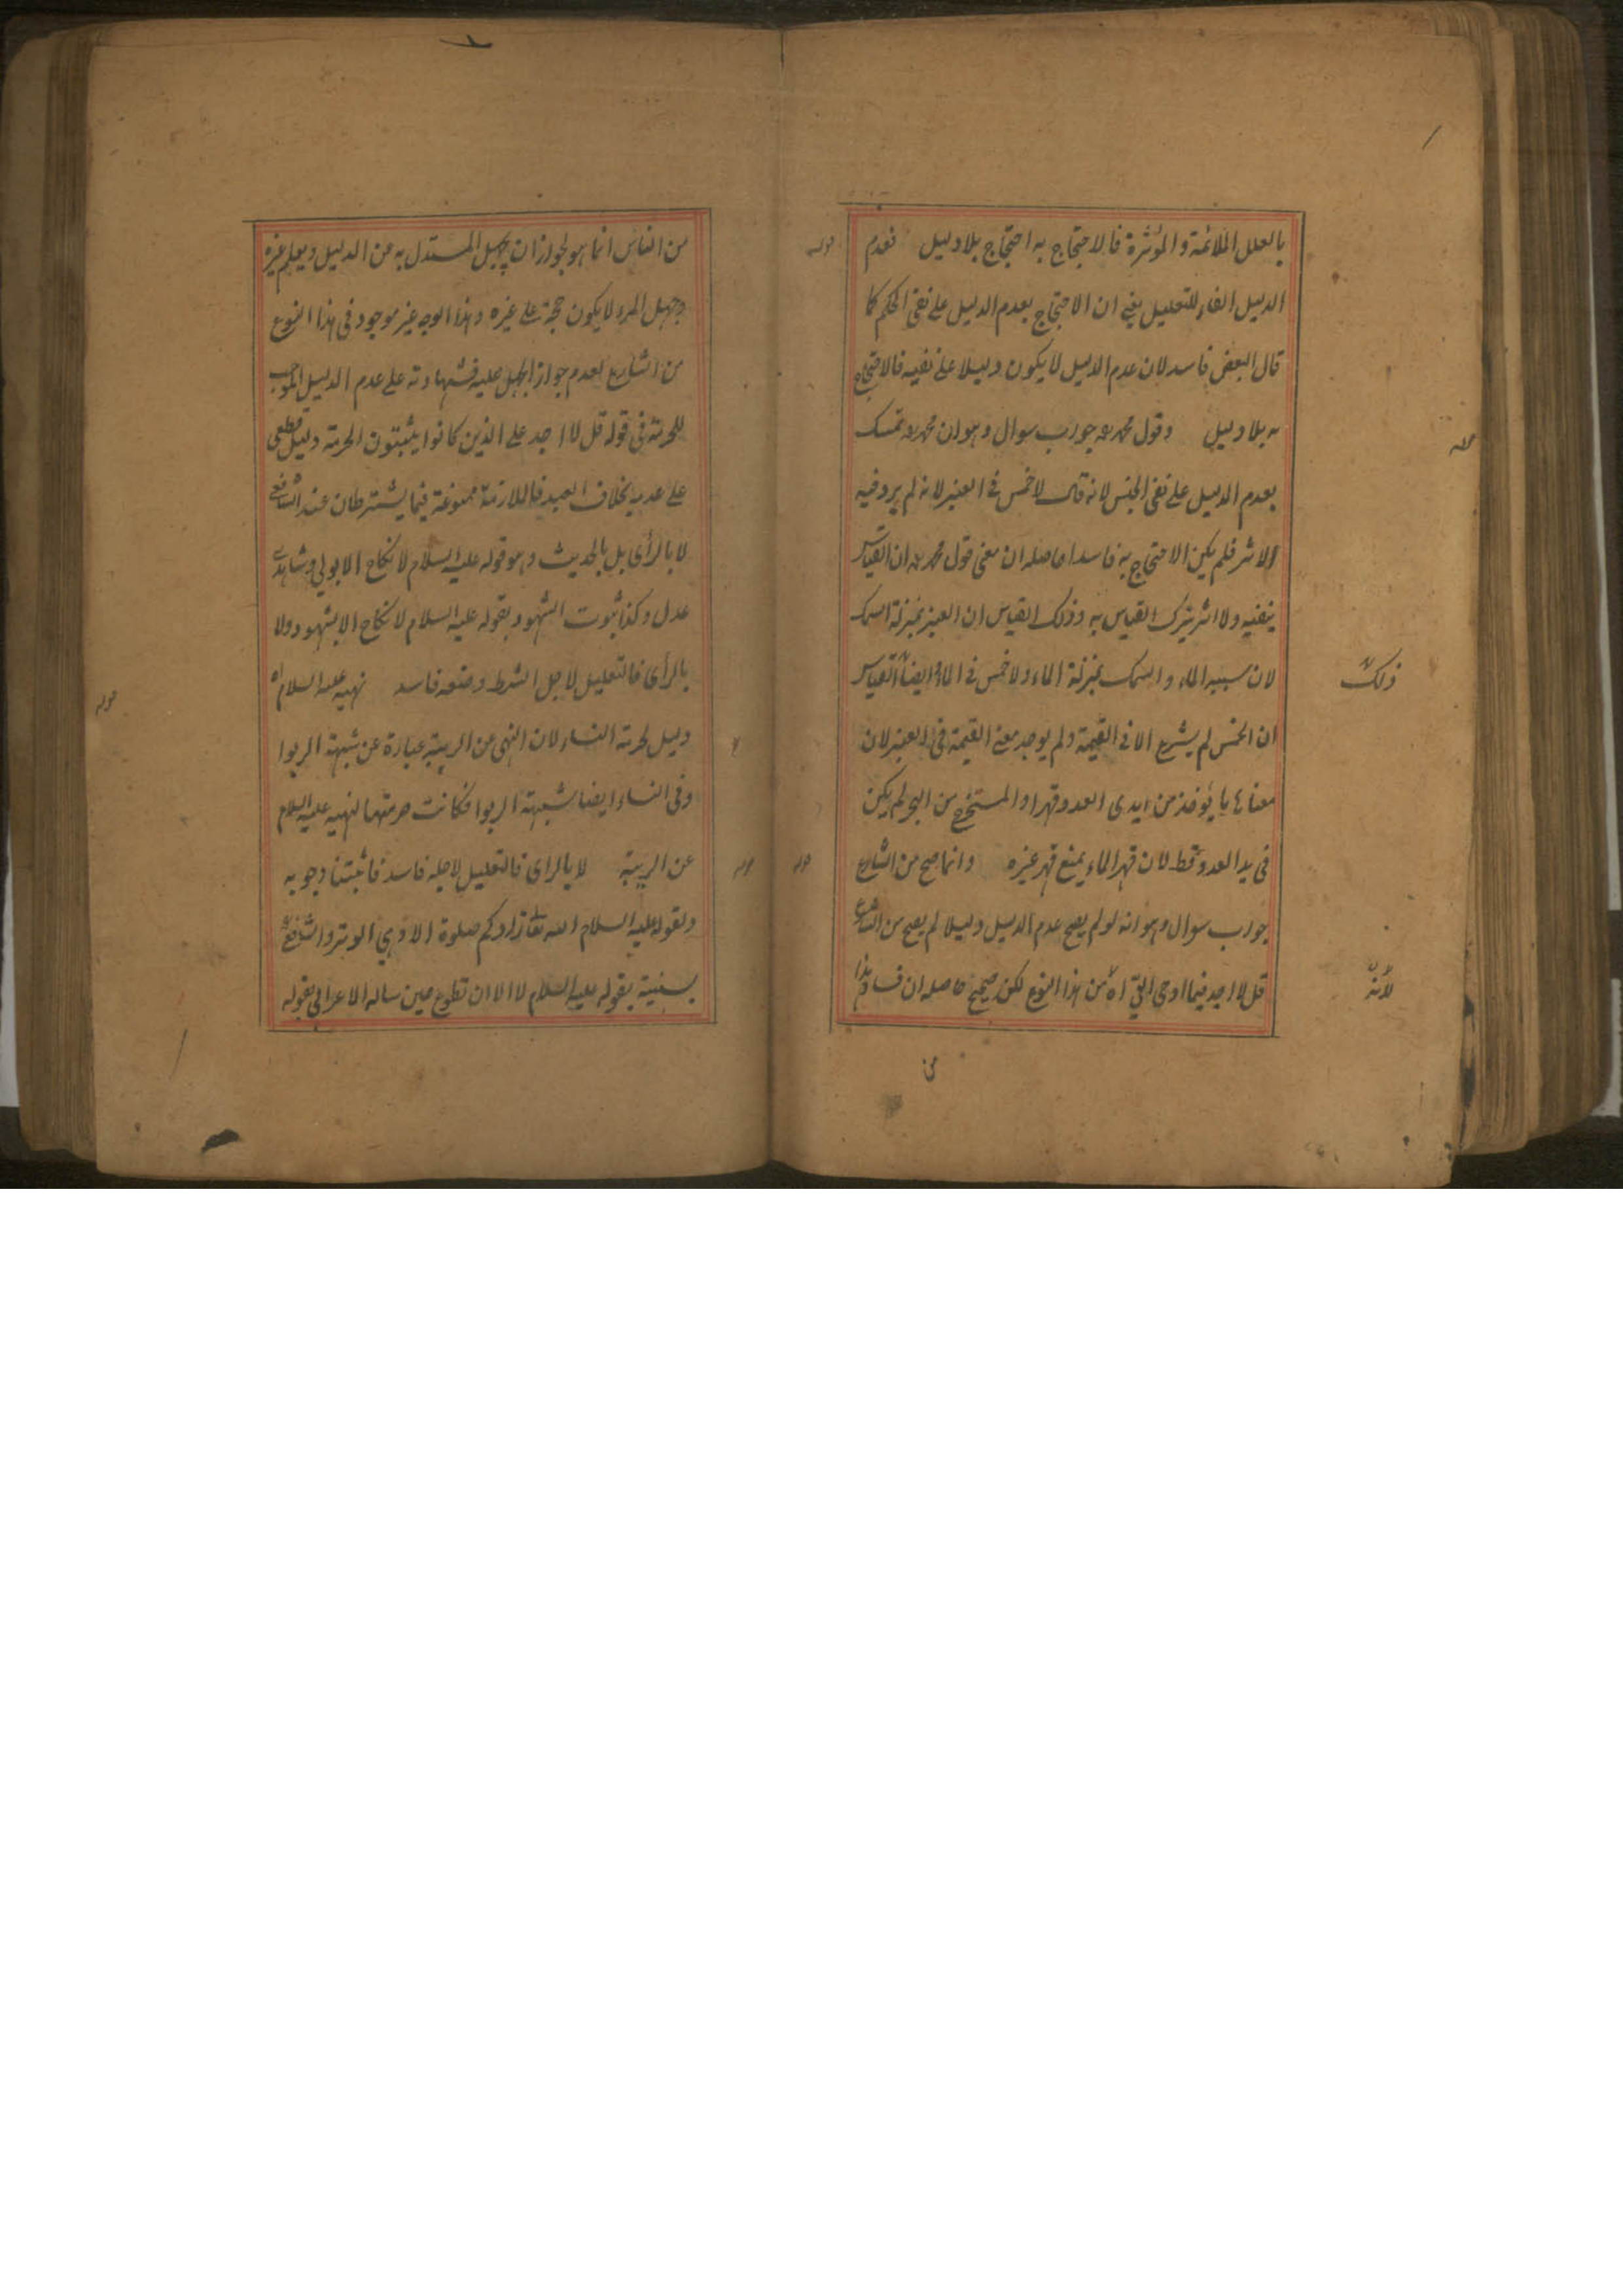 بالعلل الملائمة والمؤثرة فالاحتجاج به احتجاج بلا دليل فعدم
الدليل الفاء للتعليل يعني ان الاحتجاج بعدم الدليل على نفي الحكم كما
قال البعض فاسد لان عدم الدليل لا يكون دليلا على نفيه فالاحتجاج
به بلا دليل وقول محمد رح جواب سوال وهو ان محمد رح تمسك
بعدم الدليل على نفي الخمس لانه قال لا خمس في العنبر لانه لم يرد فيه
الاثر فلم يكن الاحتجاج به فاسدا حاصله ان معنى قول محمد رح ان القياس
ينفيه ولا اثر يترك القياس به وذلك القياس ان العنبر بمنزلة السمك
لان سبيه الماء والسمك بمنزلة الماء ولا خمس في الماء ايضا القياس
ذلك
ان الخمس لم يشرع الا في القيمة ولم يوجد معنى القيمة في العنبر لان
معناها ما يؤخذ من ايدي العدو قهرا والمستخرج من البحر لم يكن
في يد العدو قط لان قهر الماء يمنع قهر غيره وانما صح من الشارع
جواب سوال وهو انه لو لم يصح عدم الدليل دليلا لم يصح من الشارع
قل لا اجد فيما اوحي الي اه من هذا النوع لكن صحيح حاصله ان فساد هذا
لانه
من
من الناس انما هو لجواز ان يجهل المستدل به من الدليل ويعلم غيره
وجهل المرء لا يكون حجة على غيره وهذا الوجه غير موجود في هذا النوع
من الشارع لعدم جواز الجهل عليه فشهادته على عدم الدليل الموجب
للحرمة في قوله قل لا اجد على الذين كانوا يثبتون الحرمة دليل قطعي
على عدمه بخلاف العبيد فالملازمة ممنوعة فيما يشترطان عند الشافعي
لا بالرأى بل بالحديث وهو قوله عليه السلام لا نكاح الا بولي وشاهدي
عدل وكذا ثبوت الشهود بقوله عليه السلام لا نكاح الا بشهود ولا
بالرأى فالتعليل لاجل الشرط وصفه فاسد نهيه عليه السلام اه
قوله
دليل لحرمة النساء لان النهي عن الريبة عبارة عن شبهة الربوا
وفي النساء ايضا شبهة الربوا فكانت حرمتهما لنهيه عليه السلام
عن الريبة لا بالراى فالتعليل لاجله فاسد فاثبتنا وجوبه
ولقوله عليه السلام الله تعالى زادكم صلوة الا وهي الوتر والشافعي
بسنيته بقوله عليه السلام لا الا ان تطوع حين ساله الاعرابي بقوله